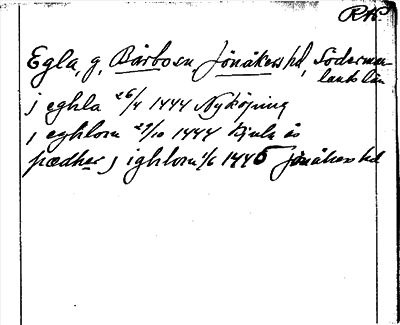 RK
Egla, g, Bärbo sn, Jönåkers hd, Söderman-
lands län
j eghla 26/4 1444 Nyköping
j eghlom 29/10 1444 ås
pædher j ighlom 1/6 1445 Jönåkers hd